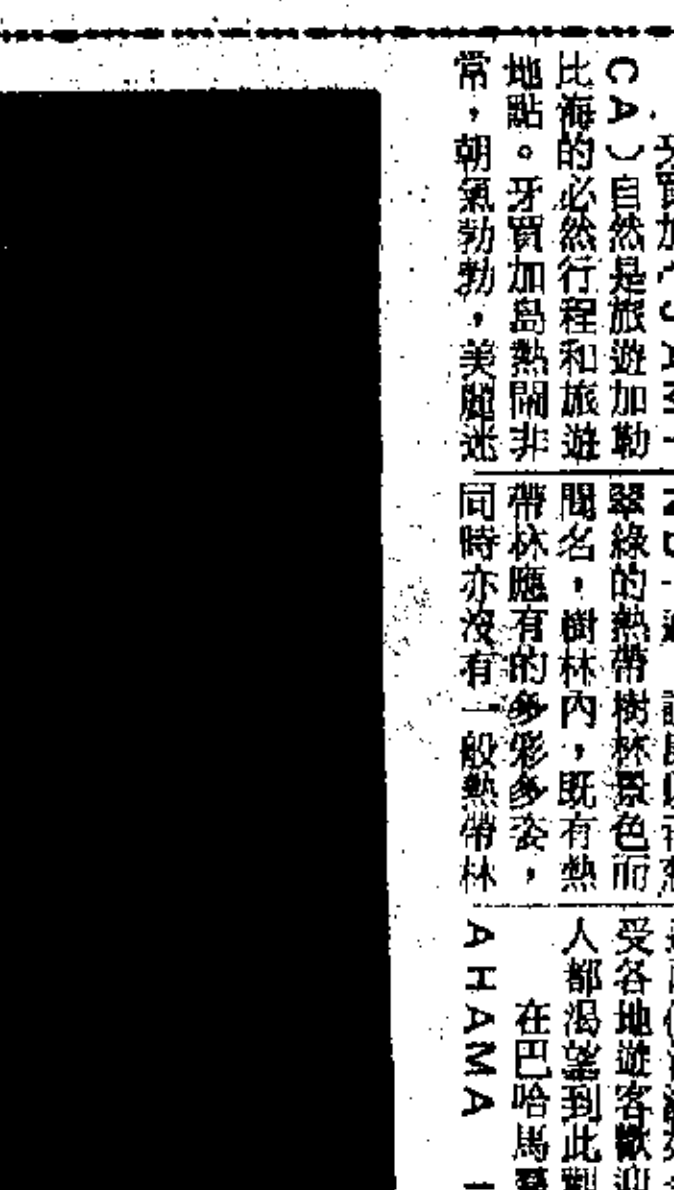 牙買加（JAMAI
CA）自然是旅遊加勒
比海的必然行程和旅遊
地點。牙買加島熱鬧非
常，朝氣勃勃，美麗迷
翠綠的熱帶樹林景色而
聞名，樹林內，既有熱
帶林應有的多彩多姿，
同時亦沒有一般熱帶林
受各地遊客歡迎
人都渴望到此觀
在巴哈馬
AHAMA